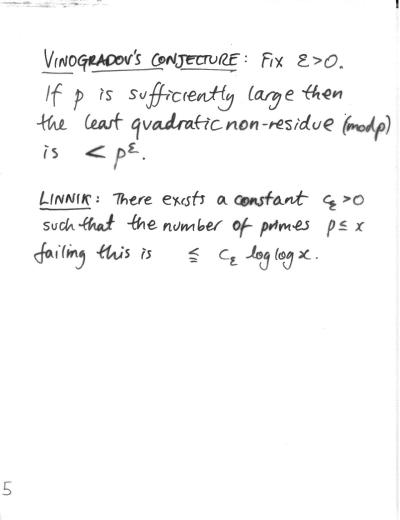 VINOGRADOV'S CONJECTURE: FIX ε>0.
If p is sufficiently large then
the least quadratic non-residue (mod p)
is < p^ε.
LINNIK: There exists a constant c_ε >0
such that the number of primes p ≤ x
failing this is ≦ c_ε log log x.
5